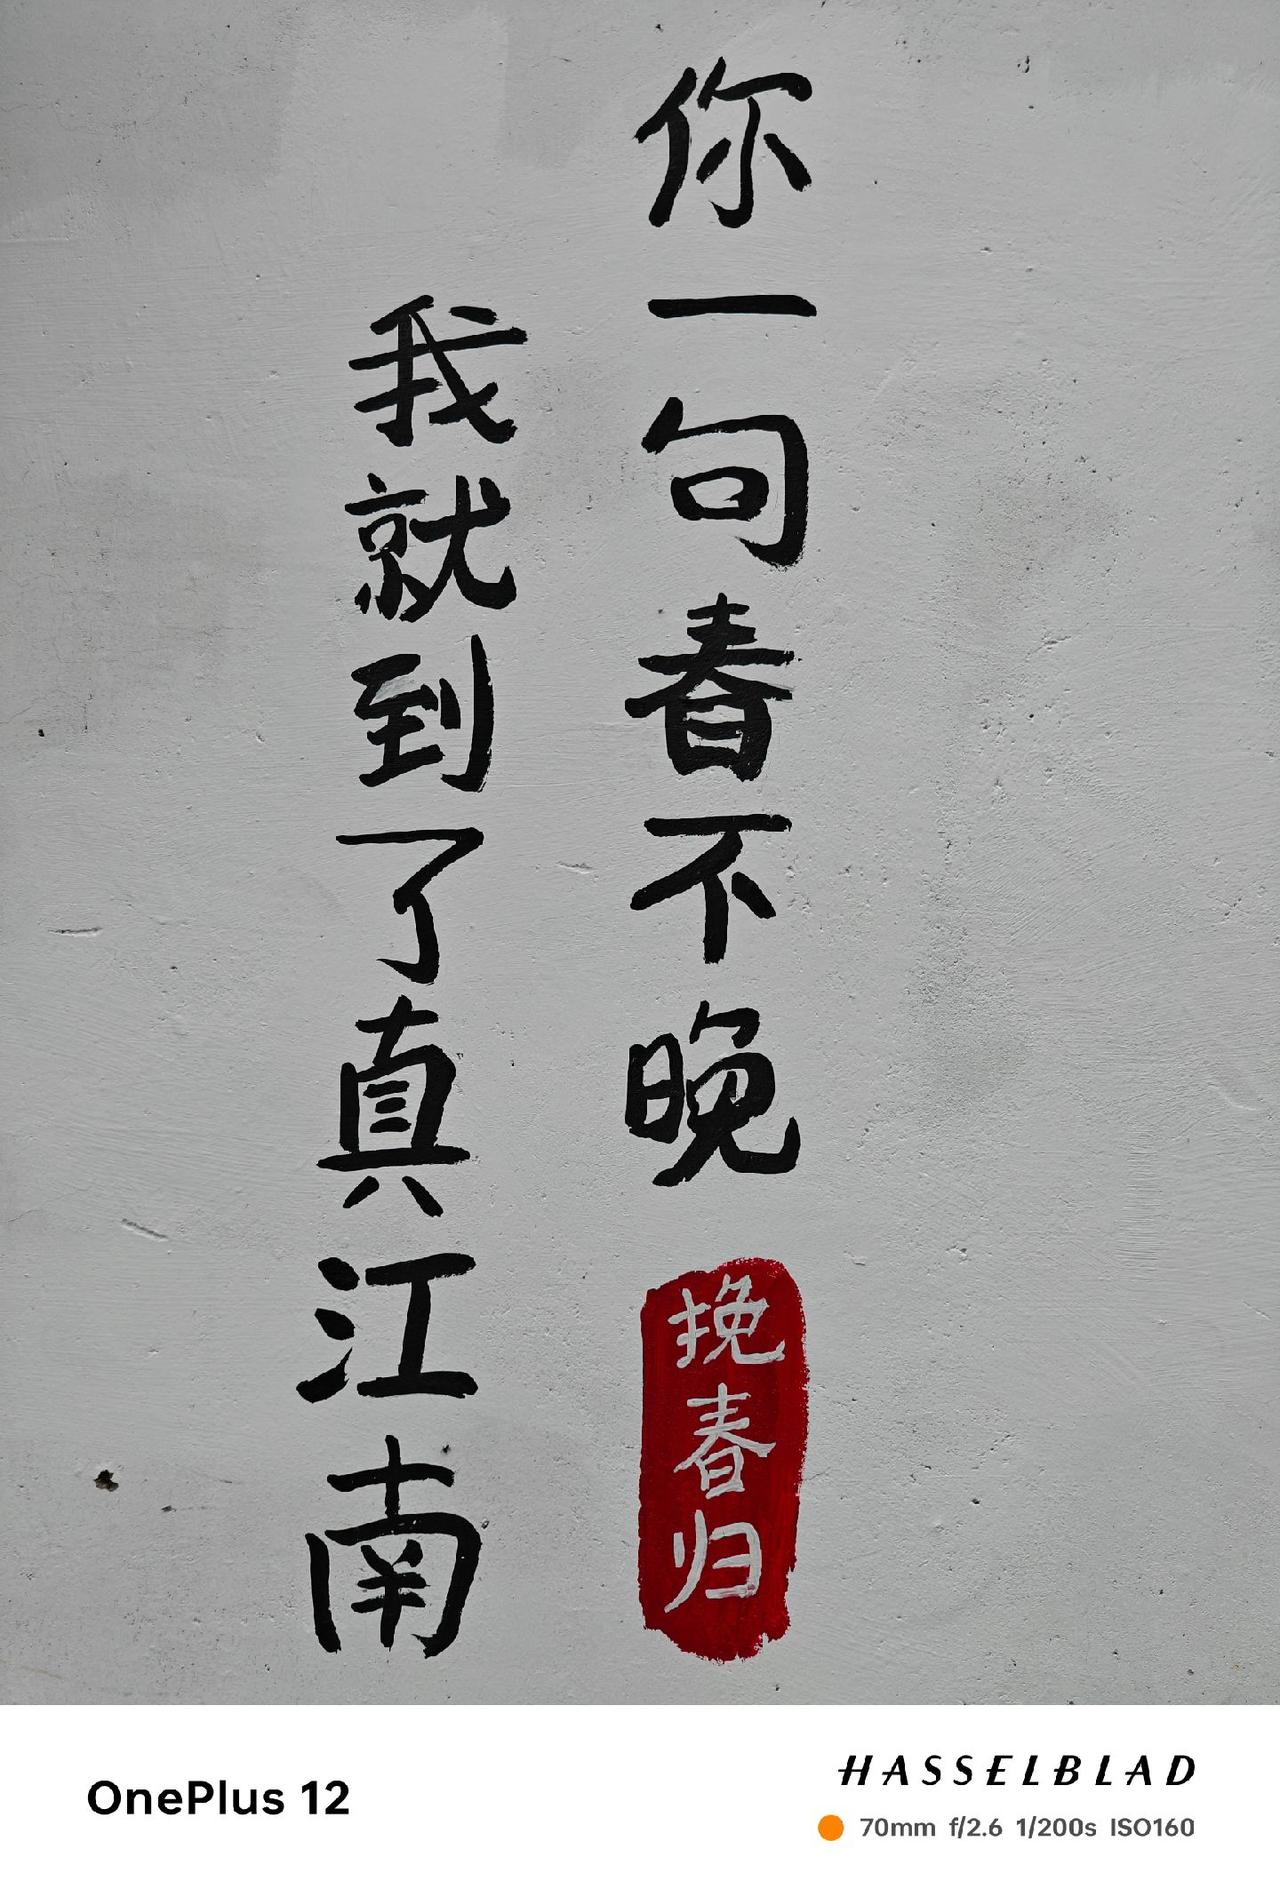 你一句春不晚
挽春归
我就到了真江南
OnePlus 12
HASSELBLAD
70mm f/2.6 1/200s ISO160